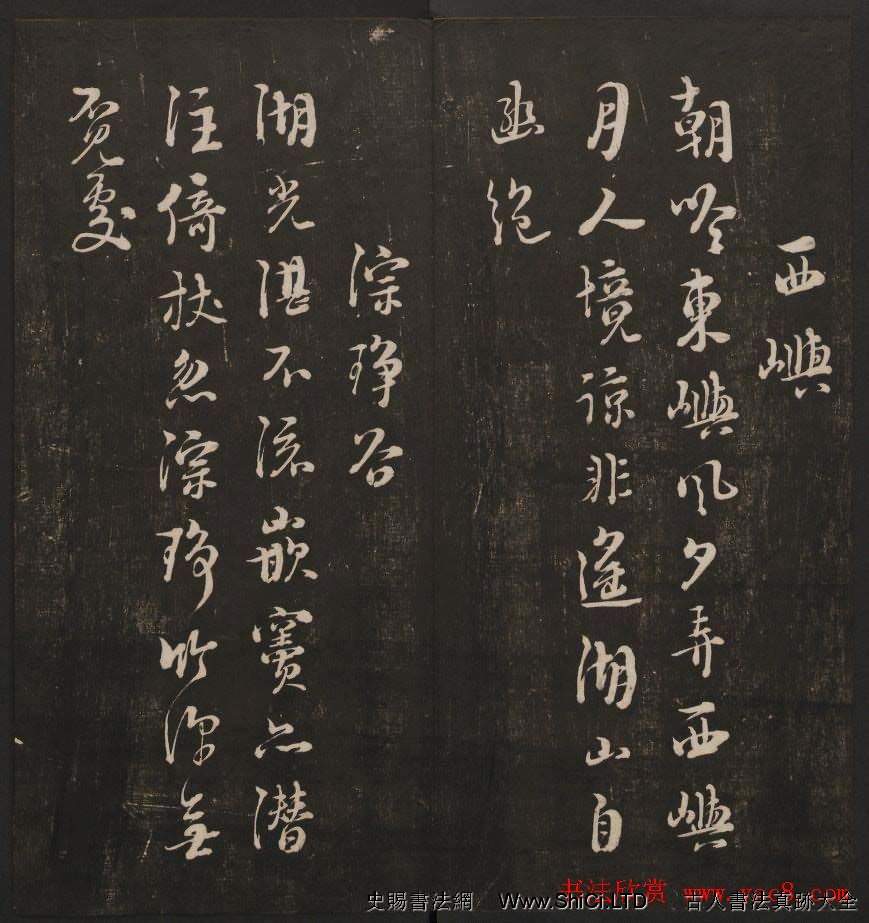 西嶼
朝吟東嶼風夕弄西嶼
月人境諒非遙湖山自
幽絶
淙琤谷
湖光湛不流嵌竇亦潜
注倚杖忽淙琤竹深無
覓處
书法欣赏 www.yac8.com
史賜書法網 Www.ShiCi.LTD 古人書法真跡大全